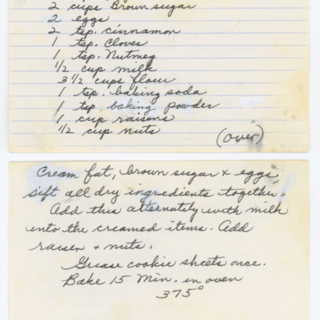 2 cups Brown sugar
2 eggs
2 tsp. cinnamon
1 tsp. Cloves
1 tsp. Nutmeg
1/2 cup milk
3 1/2 cups flour
1 tsp. baking soda
1 tsp baking powder
1 cup raisins
1/2 cup nuts
(over)
Cream fat, brown sugar & eggs,
sift all dry ingredients together.
Add this alternately with milk
into the creamed items. Add
raisen + nuts.
Grease cookie sheets once.
Bake 15 Min. in oven
375°